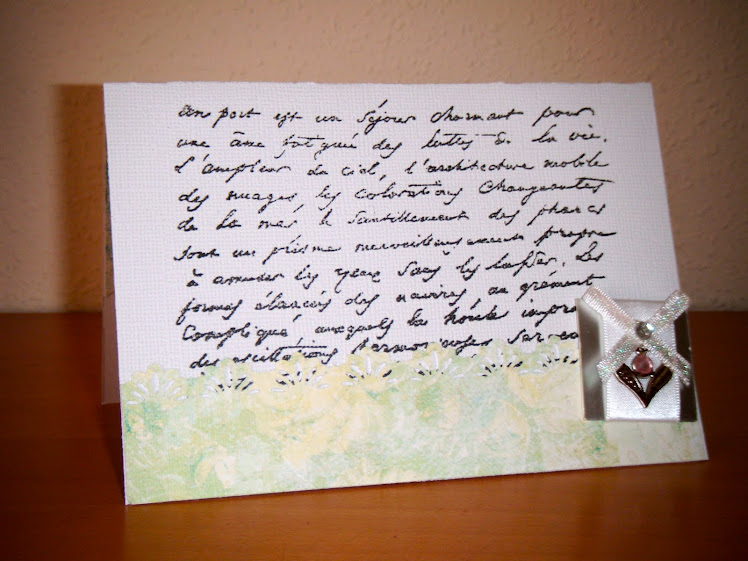 Un port est un séjour charmant pour
une âme fatiguée des luttes de la vie.
L'ampleur du ciel, l'architecture mobile
des nuages, les colorations changeantes
de la mer, le scintillement des phares
sont un prisme merveilleusement propre
à amuser les yeux sans les lasser. Les
formes élancées des navires, au gréement
compliqué, auxquels la houle impri
des oscillations harmonieuses, ser